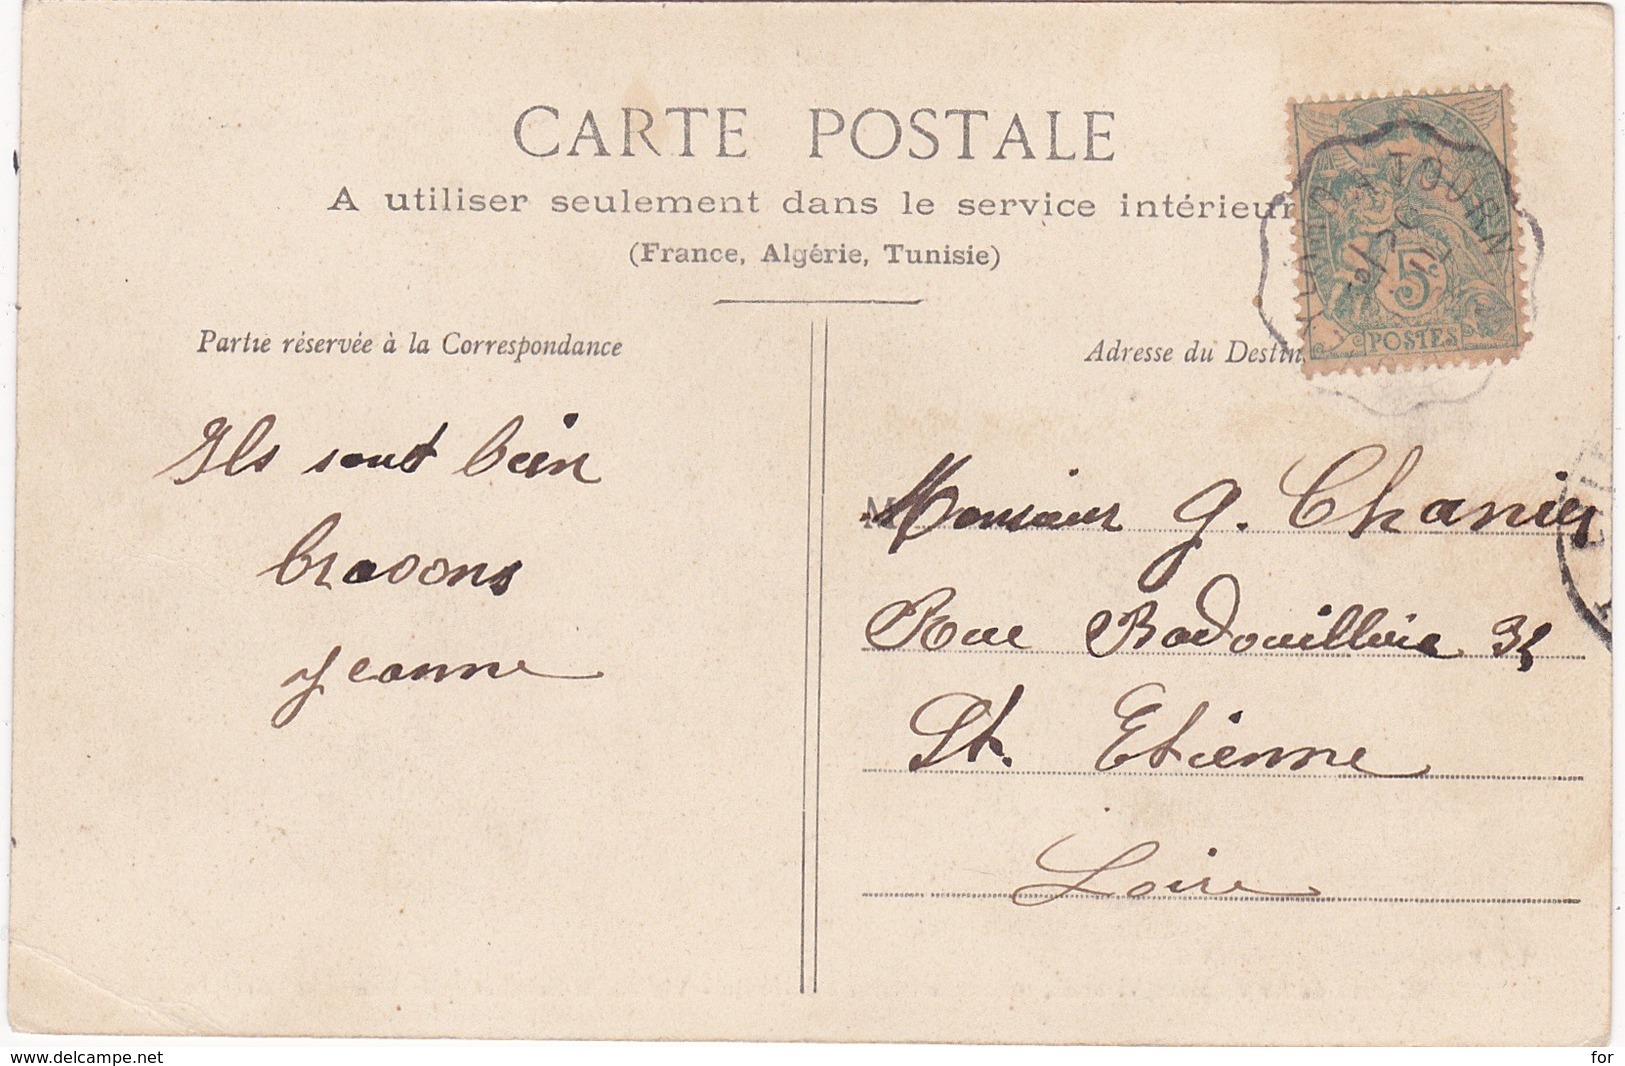 CARTE POSTALE
A utiliser seulement dans le service intérieur
(France, Algérie, Tunisie)
Partie réservée à la Correspondance
Ils sont bien
jeanne
Adresse du Destin
5c
POSTES
TOURN
Monsieur G. Chanier
Rue Badouillère 35
St. Etienne
Loire
www.delcampe.net
for